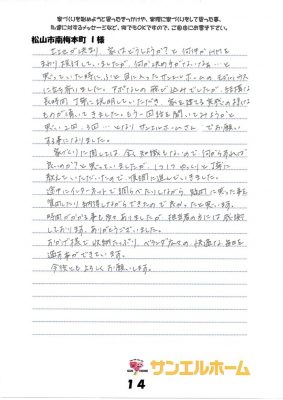 家づくりを始めようと思ったきっかけや、実際に家づくりをして思った事、
私達に対するメッセージなど、何でもOKですので、ご自由にお書き下さい。
松山市南梅本町 I様
土地が決まり、家はどうしようか？と何件かHMを
まわり検討していましたが、何か決め手がないなぁ…と
思っていた時に、ふと目に入ったサンエルホームのモデルハウス
に立ち寄りました。アポなしの飛び込みでしたが、
長時間、丁寧に説明していただき、家を建てる実感の様な
ものが湧いてきました。もう一回話を聞いてみようと
思い、2回、3回…となりサンエルホームさんでお願い
する事になりました。
家づくりに関しては全く知識もないので何から
良いのか？と思っていましたが、1つ1つゆっくりと丁寧に
教えていただいたので、順調に進んでいきました。
途中インターネットで調べたりしながら疑問に思った事を
質問したり納得しながらできたので良かったと思います。
時間がかかる事も多々ありましたが、担当者の方には感謝
しております。ありがとうございました。
おかげ様で収納たっぷり、ベランダ広々の快適な毎日を
過す事ができています。
今後ともよろしくお願いします。
サンエルホーム
14